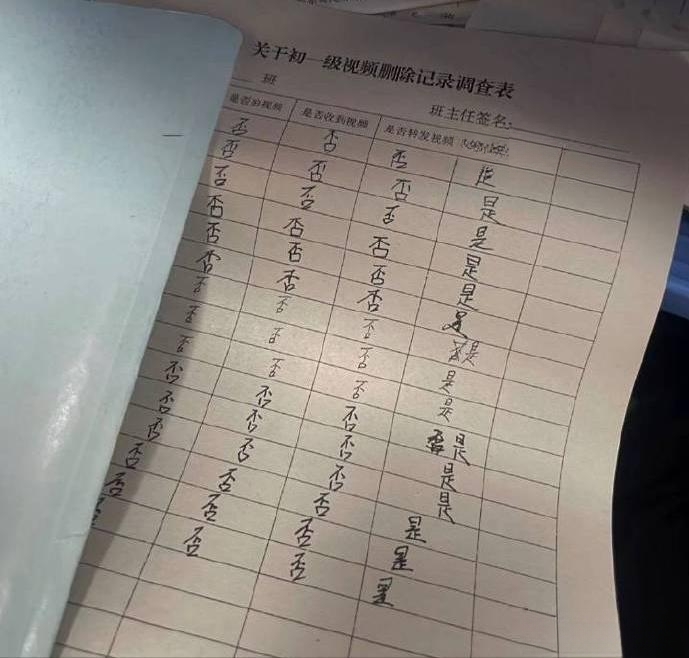 关于初一级视频删除记录调查表
班
班主任签名:
是否拍视频 是否收到视频 是否转发视频
否 否 否 是
否 否 否 是
否 否 否 是
否 否 否 是
否 否 否 是
否 否 否 是
否 否 否 是
否 否 否 是
否 否 否 是
否 否 否 否是
否 否 否 是
否 否 否 是
否 否 否 是
否 否 否 是
否 否 是